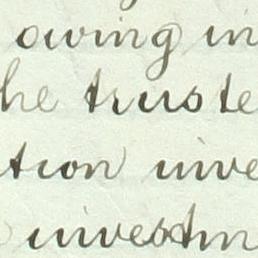 owing in
he truste
tion inve
investm